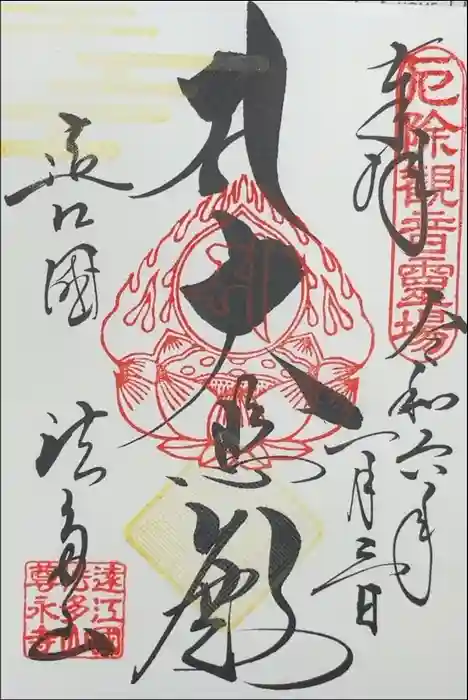 厄除觀音靈場
奉拝
令和六年
一月三日
大悲殿
遠江國
法多山
遠江國
法多山
尊永寺